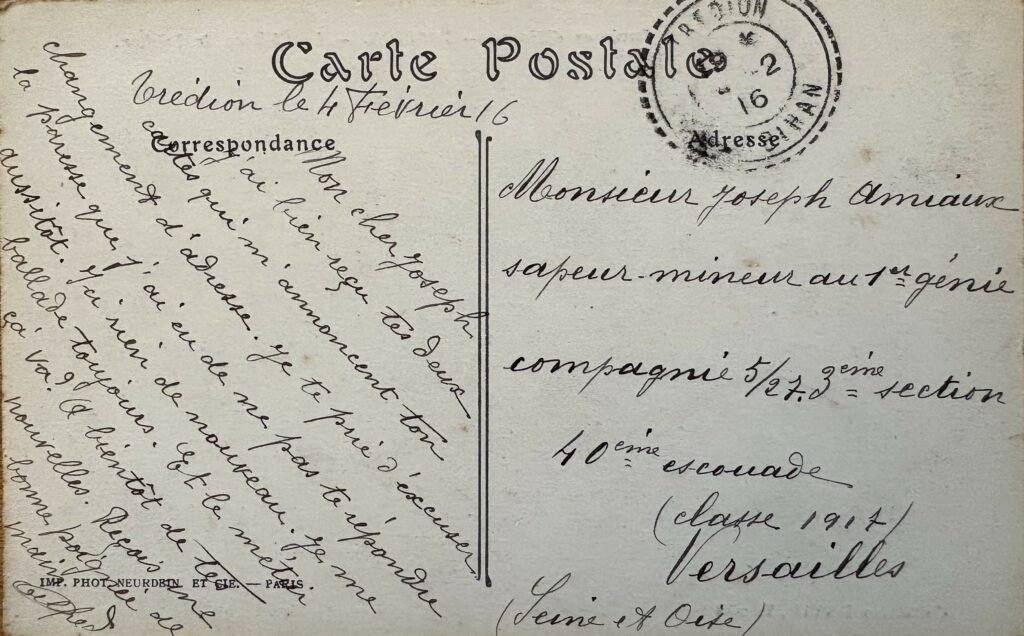 Carte Postale
TREDION
29 2
16
Trédion le 4 Février 16
Correspondance
Adresse
Mon cher Joseph
J'ai bien reçu tes deux
cartes qui m'annoncent ton
changement d'adresse. Je te prie d'éxcuser
la paresse que j'ai eu de ne pas te répondre
aussitôt. J'ai rien de nouveau. Je me
ballade toujours. Et le métier
ça va? A bientôt de tes
nouvelles. Reçois une
bonne poignée de
main
Alfred
Monsieur Joseph Amiaux
sapeur-mineur au 1er génie
compagnie 5/27. 3eme section
40eme escouade
(classe 1917)
Versailles
(Seine et Oise)
IMP. PHOT. NEURDEIN ET CIE. — PARIS